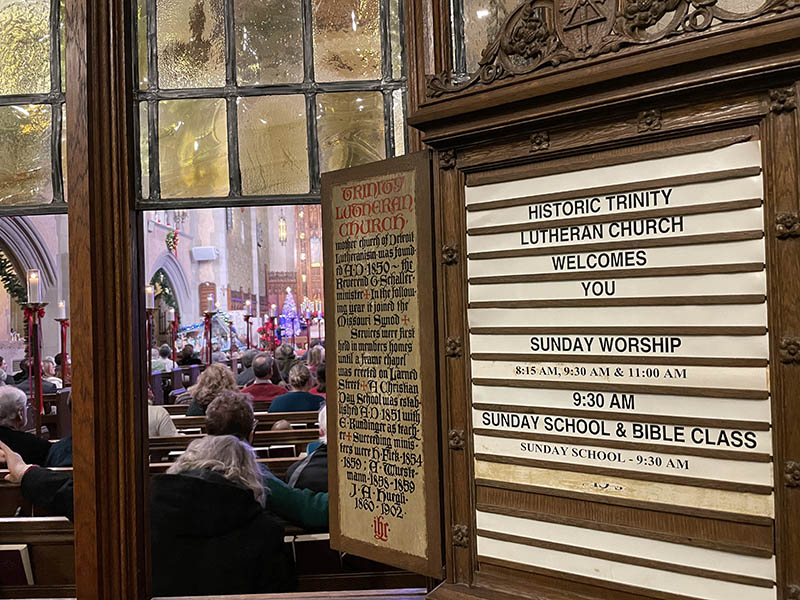 TRINITY
LUTHERAN
CHURCH
mother church of Detroit
Lutheranism was found-
ed A·D·1850 ~ the
Reverend G·Schaller
minister + In the follow-
ing year it joined the
Missouri Synod +
Services were first
held in members homes
until a frame chapel
was erected on Larned
Street + A Christian
Day School was estab-
lished A·D·1851 with
E·Rundinger as teach-
er + Succeeding minis-
ters were H·Fick·1854
-1859 : A·Wuste-
mann·1858-1859
J·A·Huegli
1860-1902
ihc
HISTORIC TRINITY
LUTHERAN CHURCH
WELCOMES
YOU
SUNDAY WORSHIP
8:15 AM, 9:30 AM & 11:00 AM
9:30 AM
SUNDAY SCHOOL & BIBLE CLASS
SUNDAY SCHOOL - 9:30 AM